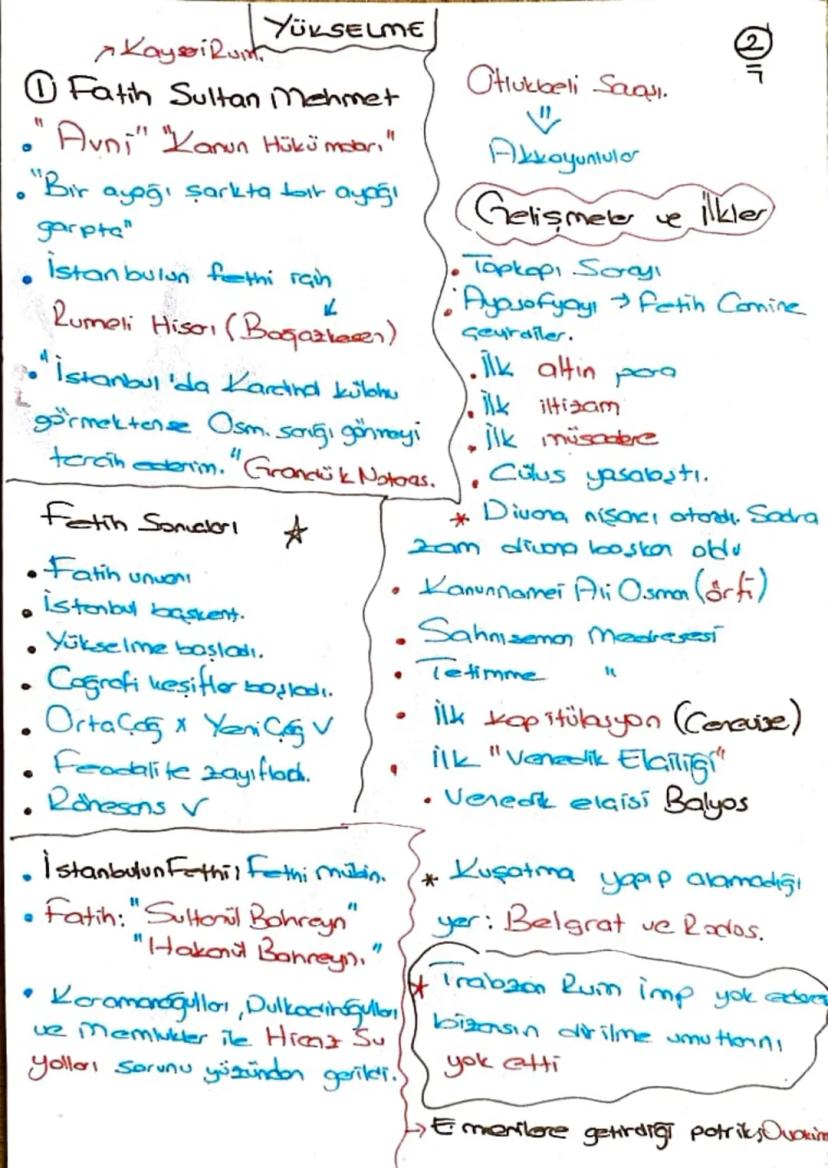 YÜKSELME
2
7
↗ Kayseri Rum.
① Fatih Sultan Mehmet
• "Avni" "Kanun Hükümdarı"
• "Bir ayağı şarkta bir ayağı
garpta"
• İstanbulun fethi için
Rumeli Hisarı (Boğazkesen)
• "İstanbul'da Kardinal külahı
görmektense Osm. sarığı görmeyi
tercih ederim." Grandük Notaras.
Fetih Sonuçları ☆
• Fatih unvanı
• İstanbul başkent.
• Yükselme başladı.
• Coğrafi keşifler başladı.
• Orta Çağ x Yeni Çağ ✓
• Feodalite zayıfladı.
• Rönesans ✓
• İstanbulun Fethi: Fethi mübin.
• Fatih: "Sultanül Bahreyn"
"Hakanül Bahreyn."
• Karamanoğulları, Dulkadiroğulları
ve Memlukler ile Hicaz Su
yolları sorunu yüzünden gerildi.
Otlukbeli Savaşı.
⇓
Akkoyunlular
Gelişmeler ve İlkler
• Topkapı Sarayı
• Ayasofyayı → Fetih Camine
çevirdiler.
• İlk altın para
• İlk iltizam
• İlk müsadere
• Cülus yasalaştı.
* Divana nişancı atandı. Sadra
zam divana başkan oldu
• Kanunnamei Ali Osman (örfi)
• Sahnıseman Medresesi
• Tetimme "
• İlk kapitülasyon (Cenevize)
• İlk "Venedik Elçiliği"
• Venedik elçisi Balyos
* Kuşatma yapıp alamadığı
yer: Belgrat ve Rodos.
* Trabzon Rum imp yok ederek
bizansın dirilme umutlarını
yok etti
→ Ermenilere getirdiği patrik; Ovakim